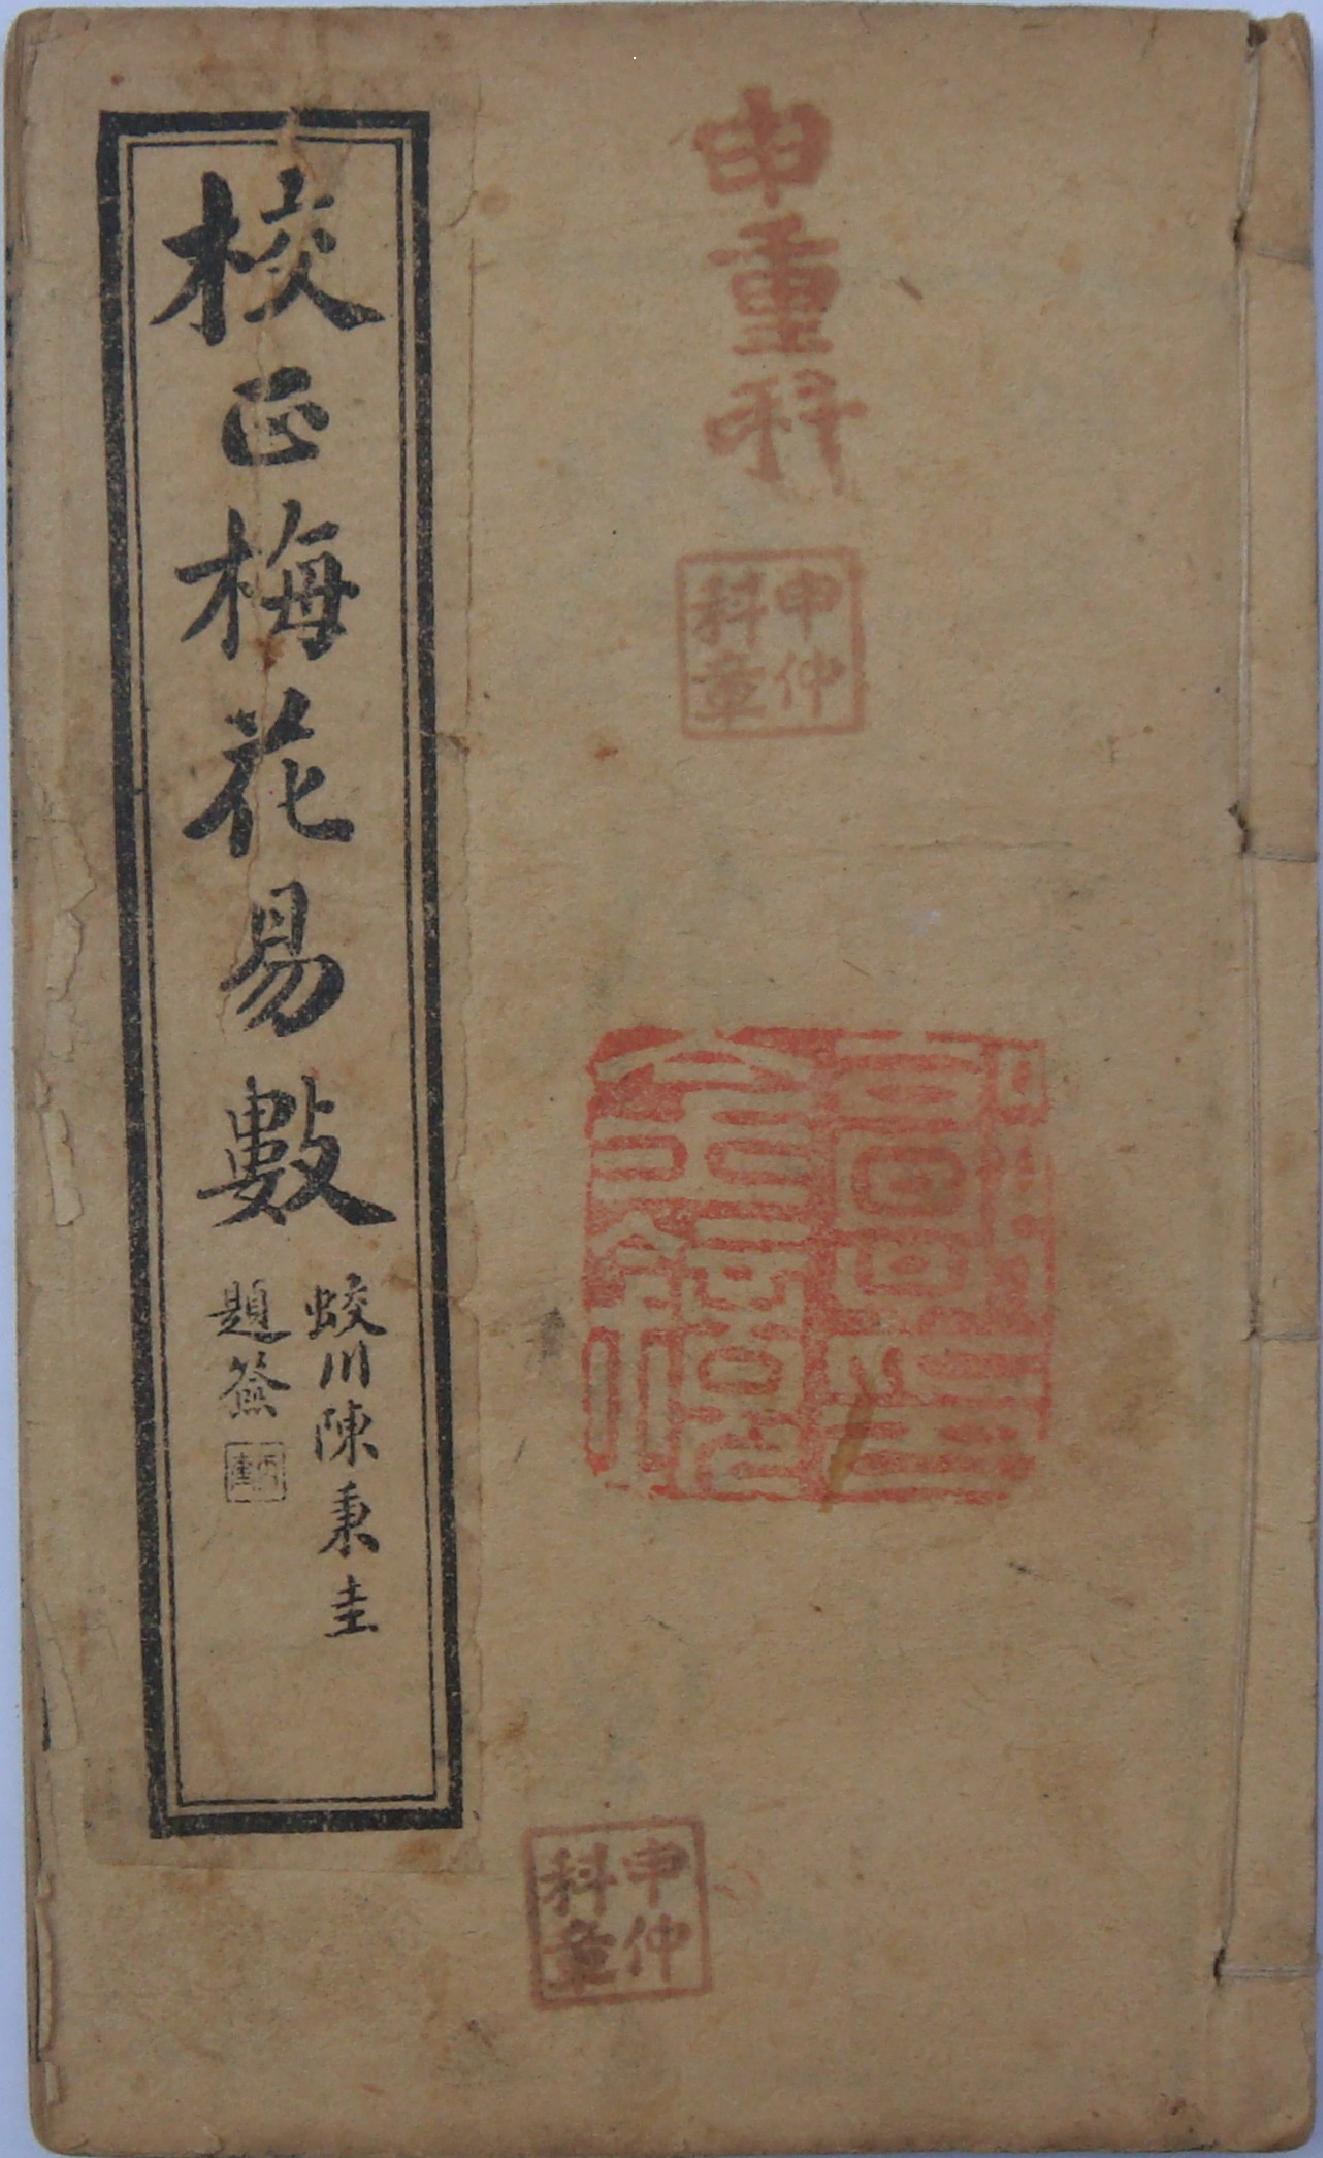 校正梅花易數
蛟川陳秉圭
題簽
申重科
申仲
科章
申仲
科章